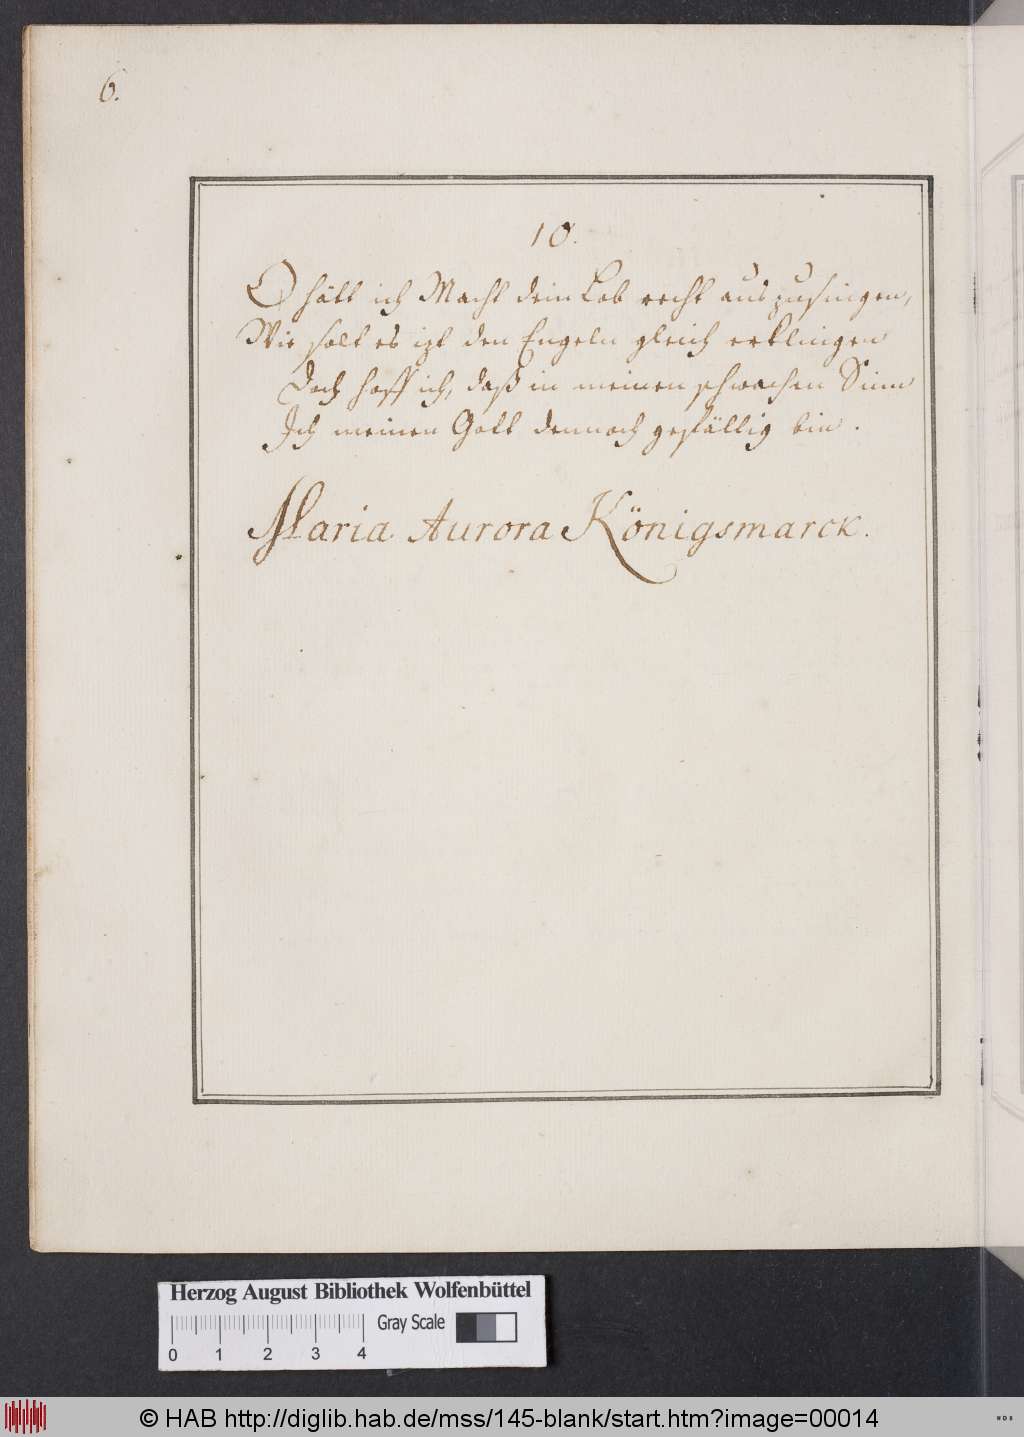 6.
10.
O hätt ich Macht dein Lob recht aus zu singen,
Wie solt es izt den Engeln gleich erklingen
Doch hoff ich, daß in meinen schwachen Sinn
Ich meinen Gott dennoch gefällig bin.
Maria Aurora Königsmarck.
Herzog August Bibliothek Wolfenbüttel
Gray Scale
0 1 2 3 4
© HAB http://diglib.hab.de/mss/145-blank/start.htm?image=00014